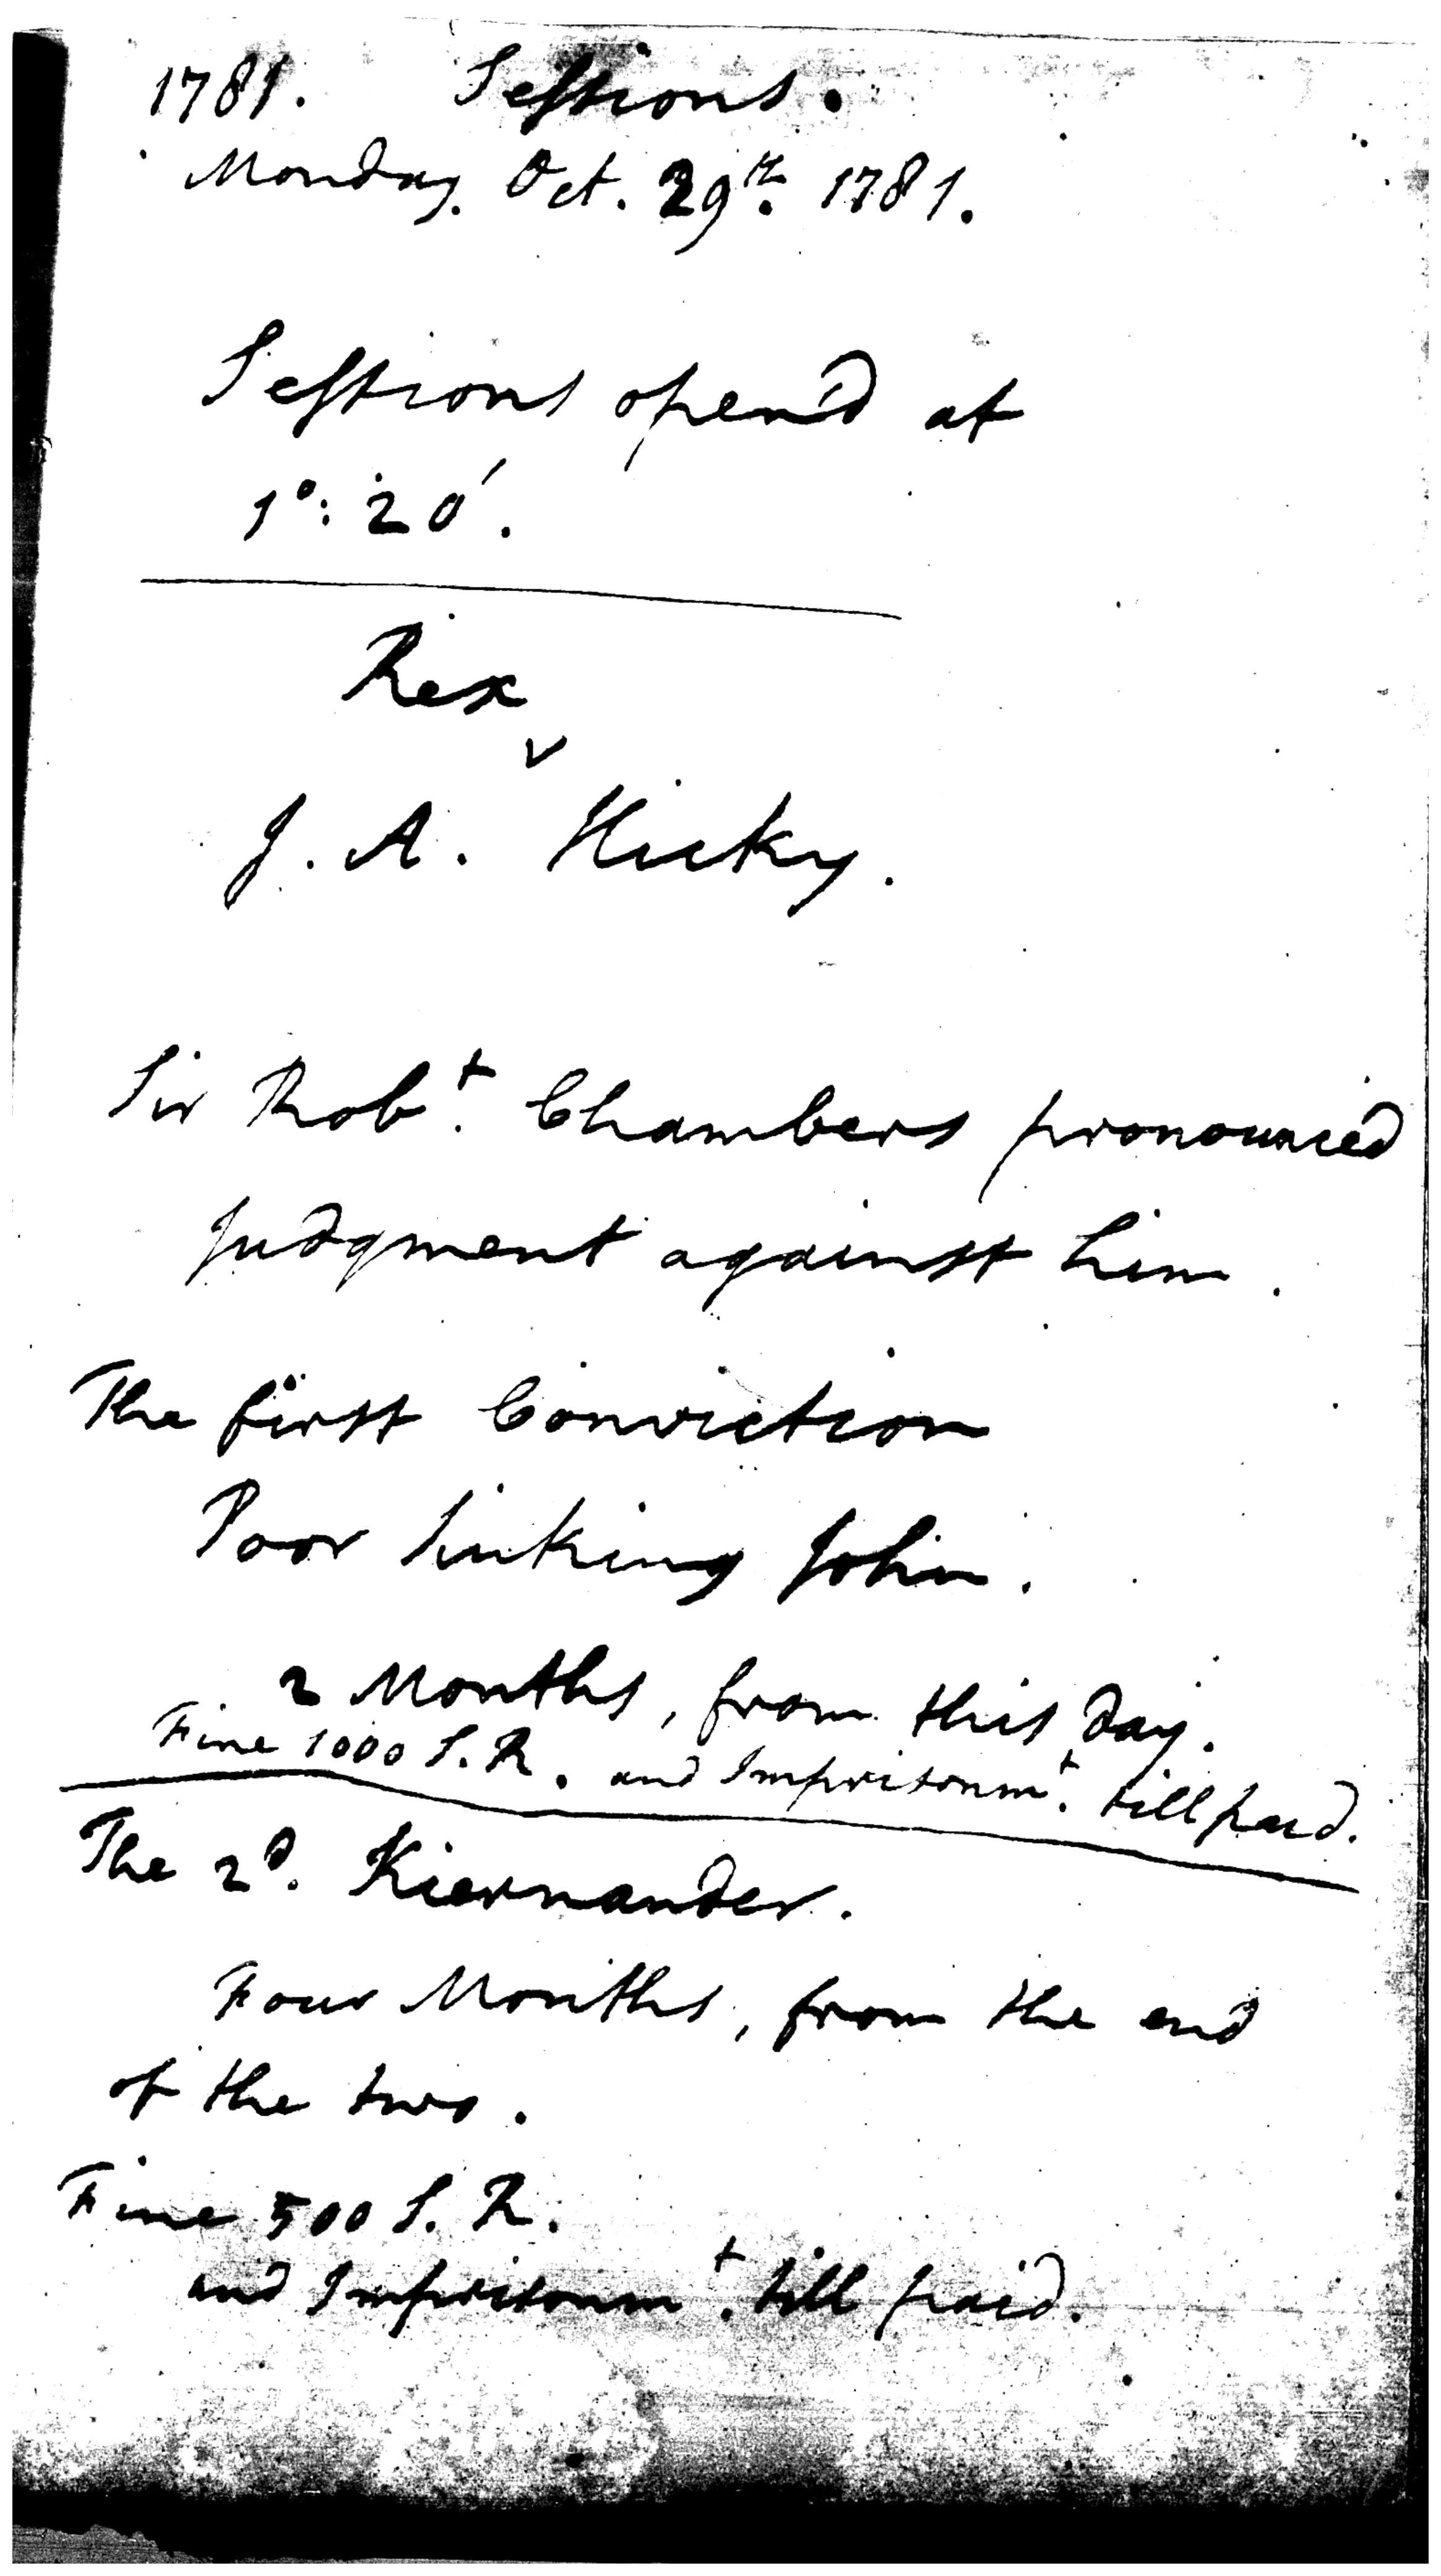 1781. Sessions.
Monday. Oct. 29th. 1781.
Sessions open'd at
1°: 20'.
Rex
v
J. A. Hicky.
Sir Robt. Chambers pronounced
Judgment against him.
The first Conviction
Poor Sinking John.
2 Months, from this day.
Fine 1000 S. R. and Imprisonmt. till paid.
The 2d. Kiernander.
Four Months, from the end
of the two.
Fine 500 S. R.
and Imprisonmt. till paid.